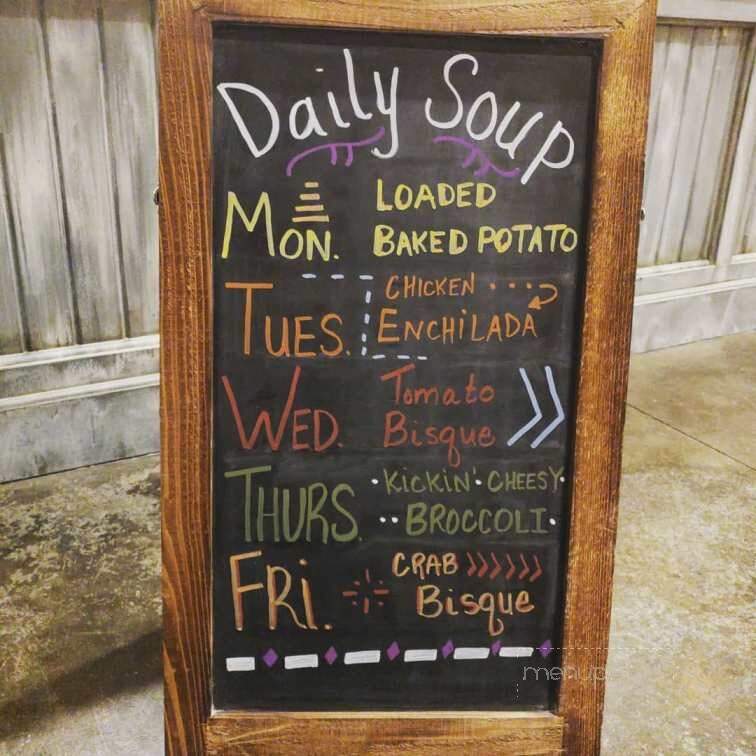 Daily Soup
MON. LOADED
BAKED POTATO
TUES. CHICKEN
ENCHILADA
WED. Tomato
Bisque
THURS. KICKIN' CHEESY
BROCCOLI
FRI. CRAB
Bisque
menup